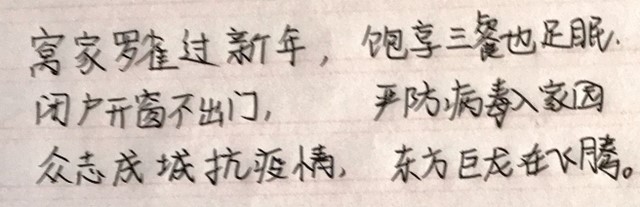 窝家罗雀过新年，饱享三餐也足眠.
闭户开窗不出门，严防病毒入家园
众志成城抗疫情，东方巨龙在飞腾。